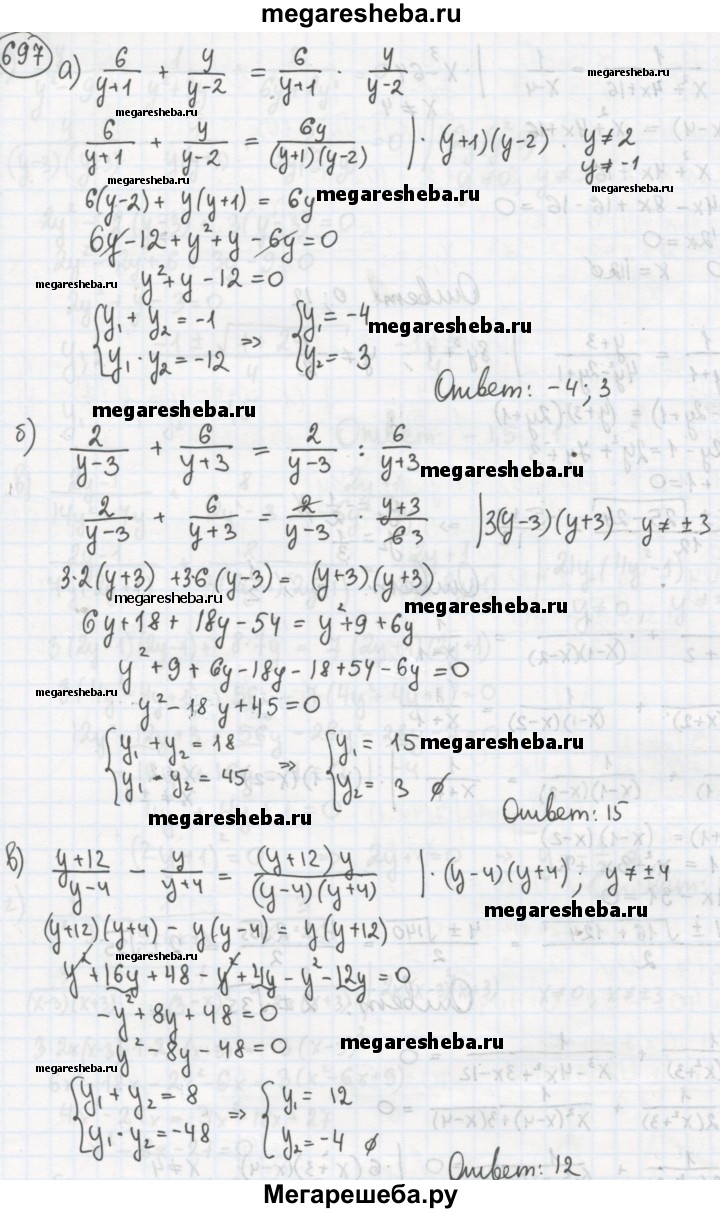 megaresheba.ru
697
а) 6/(y+1) + y/(y-2) = 6/(y+1) · y/(y-2)
megaresheba.ru
megaresheba.ru
6/(y+1) + y/(y-2) = 6y/((y+1)(y-2)) | · (y+1)(y-2) y≠2
y≠-1
megaresheba.ru
6(y-2) + y(y+1) = 6y
megaresheba.ru
6y - 12 + y² + y - 6y = 0
megaresheba.ru
y² + y - 12 = 0
{ y₁ + y₂ = -1 => { y₁ = -4
megaresheba.ru
y₁ · y₂ = -12 y₂ = 3
Ответ: -4; 3
megaresheba.ru
б) 2/(y-3) + 6/(y+3) = 2/(y-3) : 6/(y+3)
megaresheba.ru
2/(y-3) + 6/(y+3) = 2/(y-3) · (y+3)/6 3 | 3(y-3)(y+3) y≠±3
3·2(y+3) + 3·6(y-3) = (y+3)(y+3)
megaresheba.ru
megaresheba.ru
6y + 18 + 18y - 54 = y² + 9 + 6y
y² + 9 + 6y - 18y - 18 + 54 - 6y = 0
megaresheba.ru
y² - 18y + 45 = 0
{ y₁ + y₂ = 18 => { y₁ = 15
megaresheba.ru
y₁ - y₂ = 45 y₂ = 3 ∅
Ответ: 15
megaresheba.ru
в) (y+12)/(y-4) - y/(y+4) = (y+12)y/((y-4)(y+4)) | · (y-4)(y+4); y≠±4
megaresheba.ru
(y+12)(y+4) - y(y-4) = y(y+12)
megaresheba.ru
y² + 16y + 48 - y² + 4y - y² - 12y = 0
-y² + 8y + 48 = 0
megaresheba.ru
y² - 8y - 48 = 0
megaresheba.ru
{ y₁ + y₂ = 8 => { y₁ = 12
y₁ · y₂ = -48 y₂ = -4 ∅
megaresheba.ru
Ответ: 12
Мегарешеба.ру